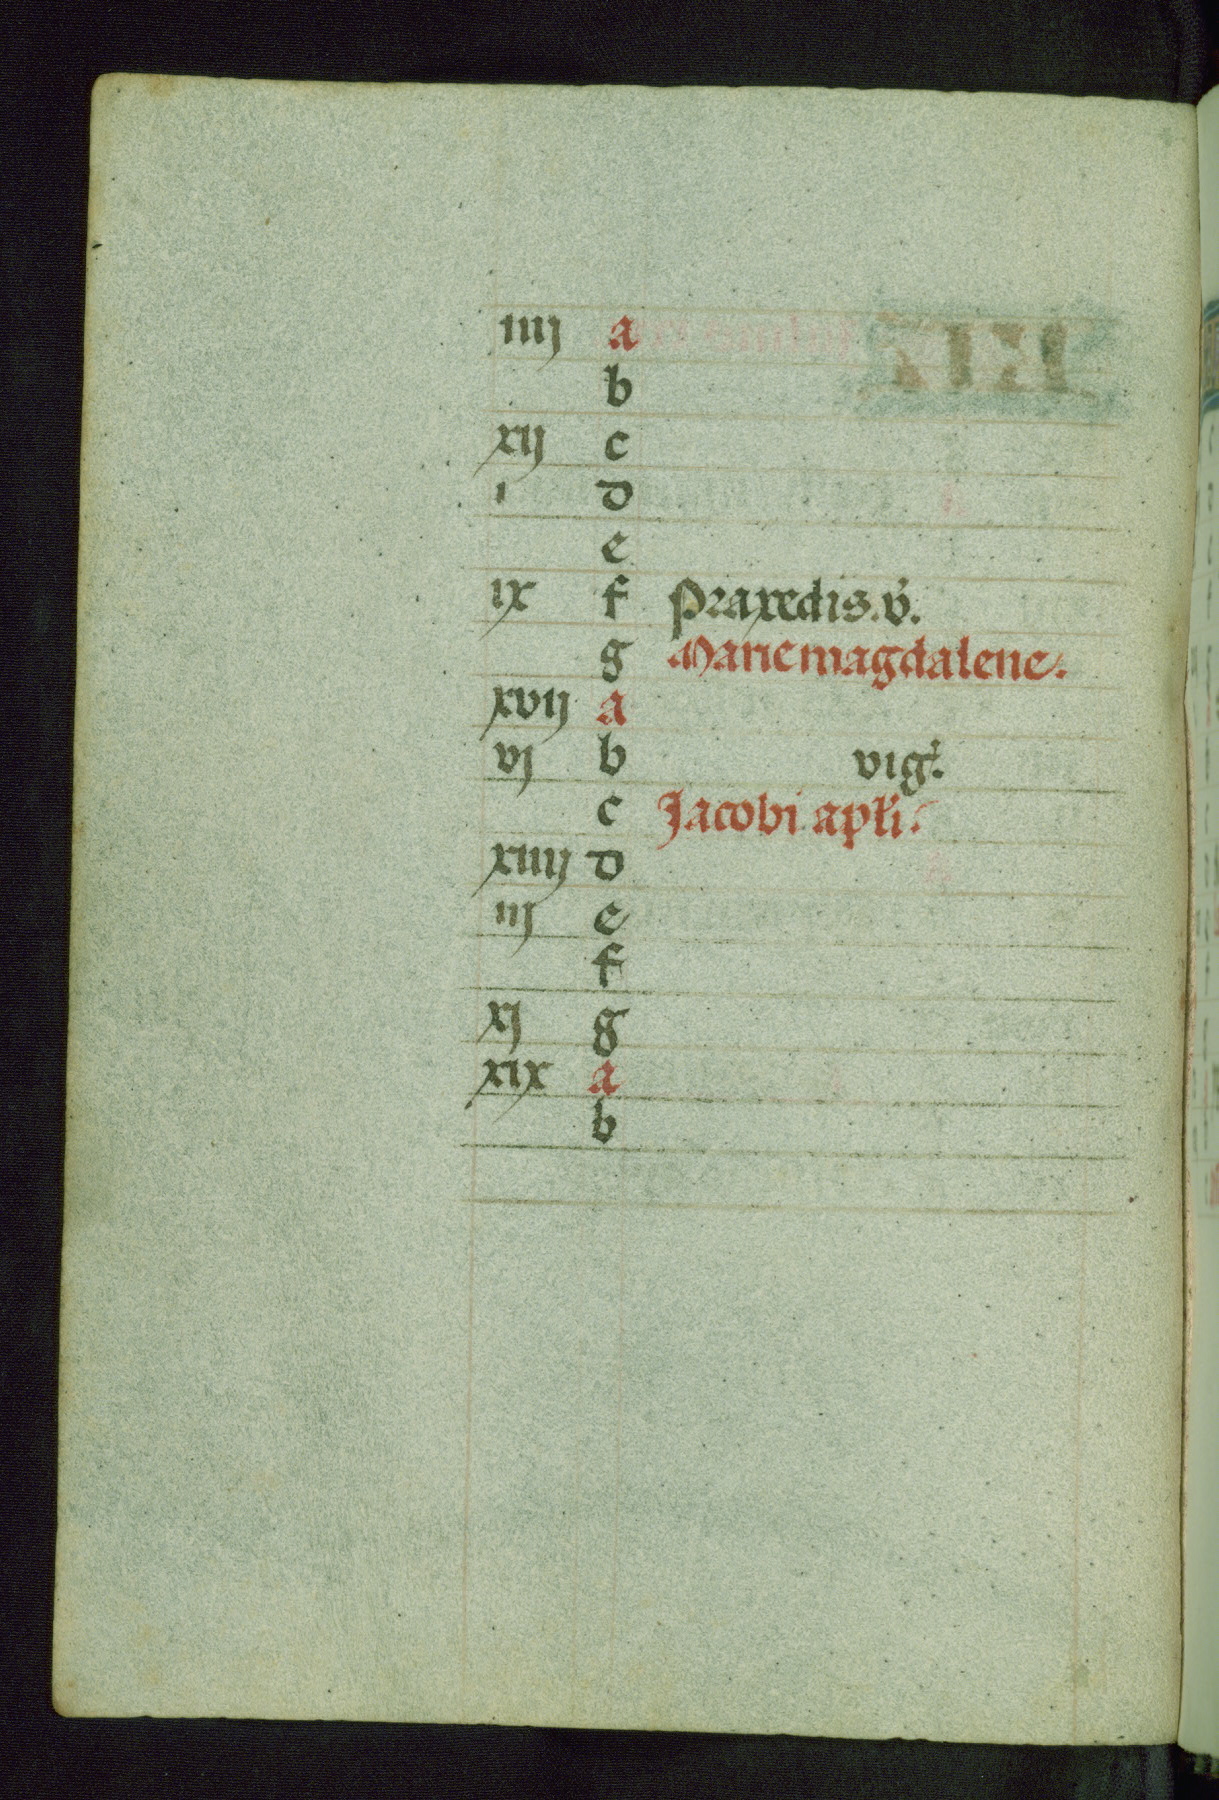 iiij a
b
xij c
i d
e
ix f Praxedis. v̄.
g Marie magdalene.
xvij a
vj b vig̃.
c Jacobi apłi.
xiiij d
iij e
f
xj g
xix a
b